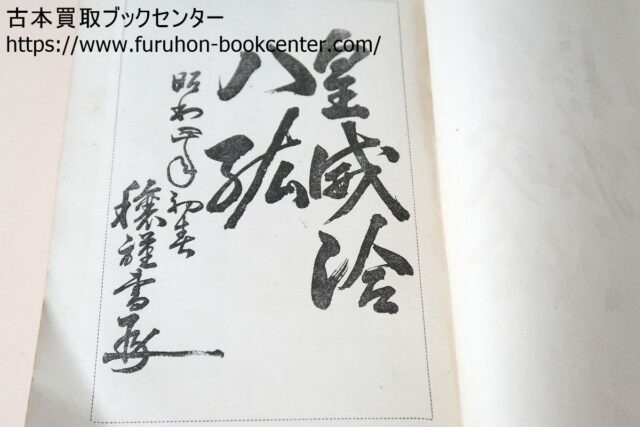 古本買取ブックセンター
https://www.furuhon-bookcenter.com/
皇威洽
八紘
昭和四年初春
穣謹書